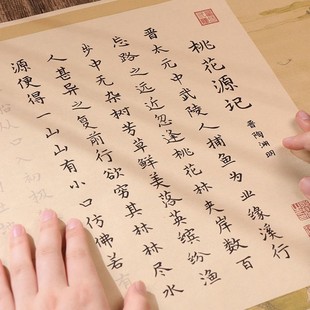 桃花源记
晋陶渊明
晋太元中武陵人捕鱼为业缘溪行
忘路之远近忽逢桃花林夹岸数百
步中无杂树芳草鲜美落英缤纷渔
人甚异之复前行欲穷其林林尽水
源便得一山山有小口仿佛若